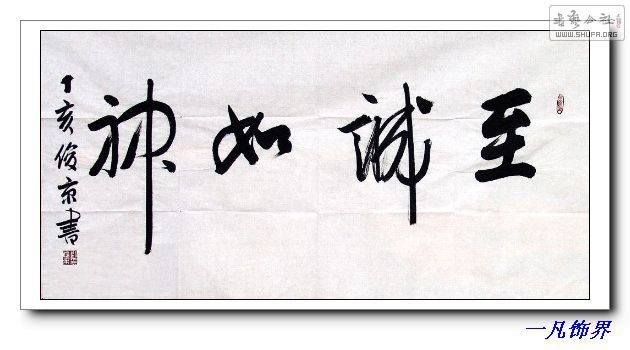 至誠如神
丁亥俊京書
書藝公社
WWW.SHUFA.ORG
一凡饰界